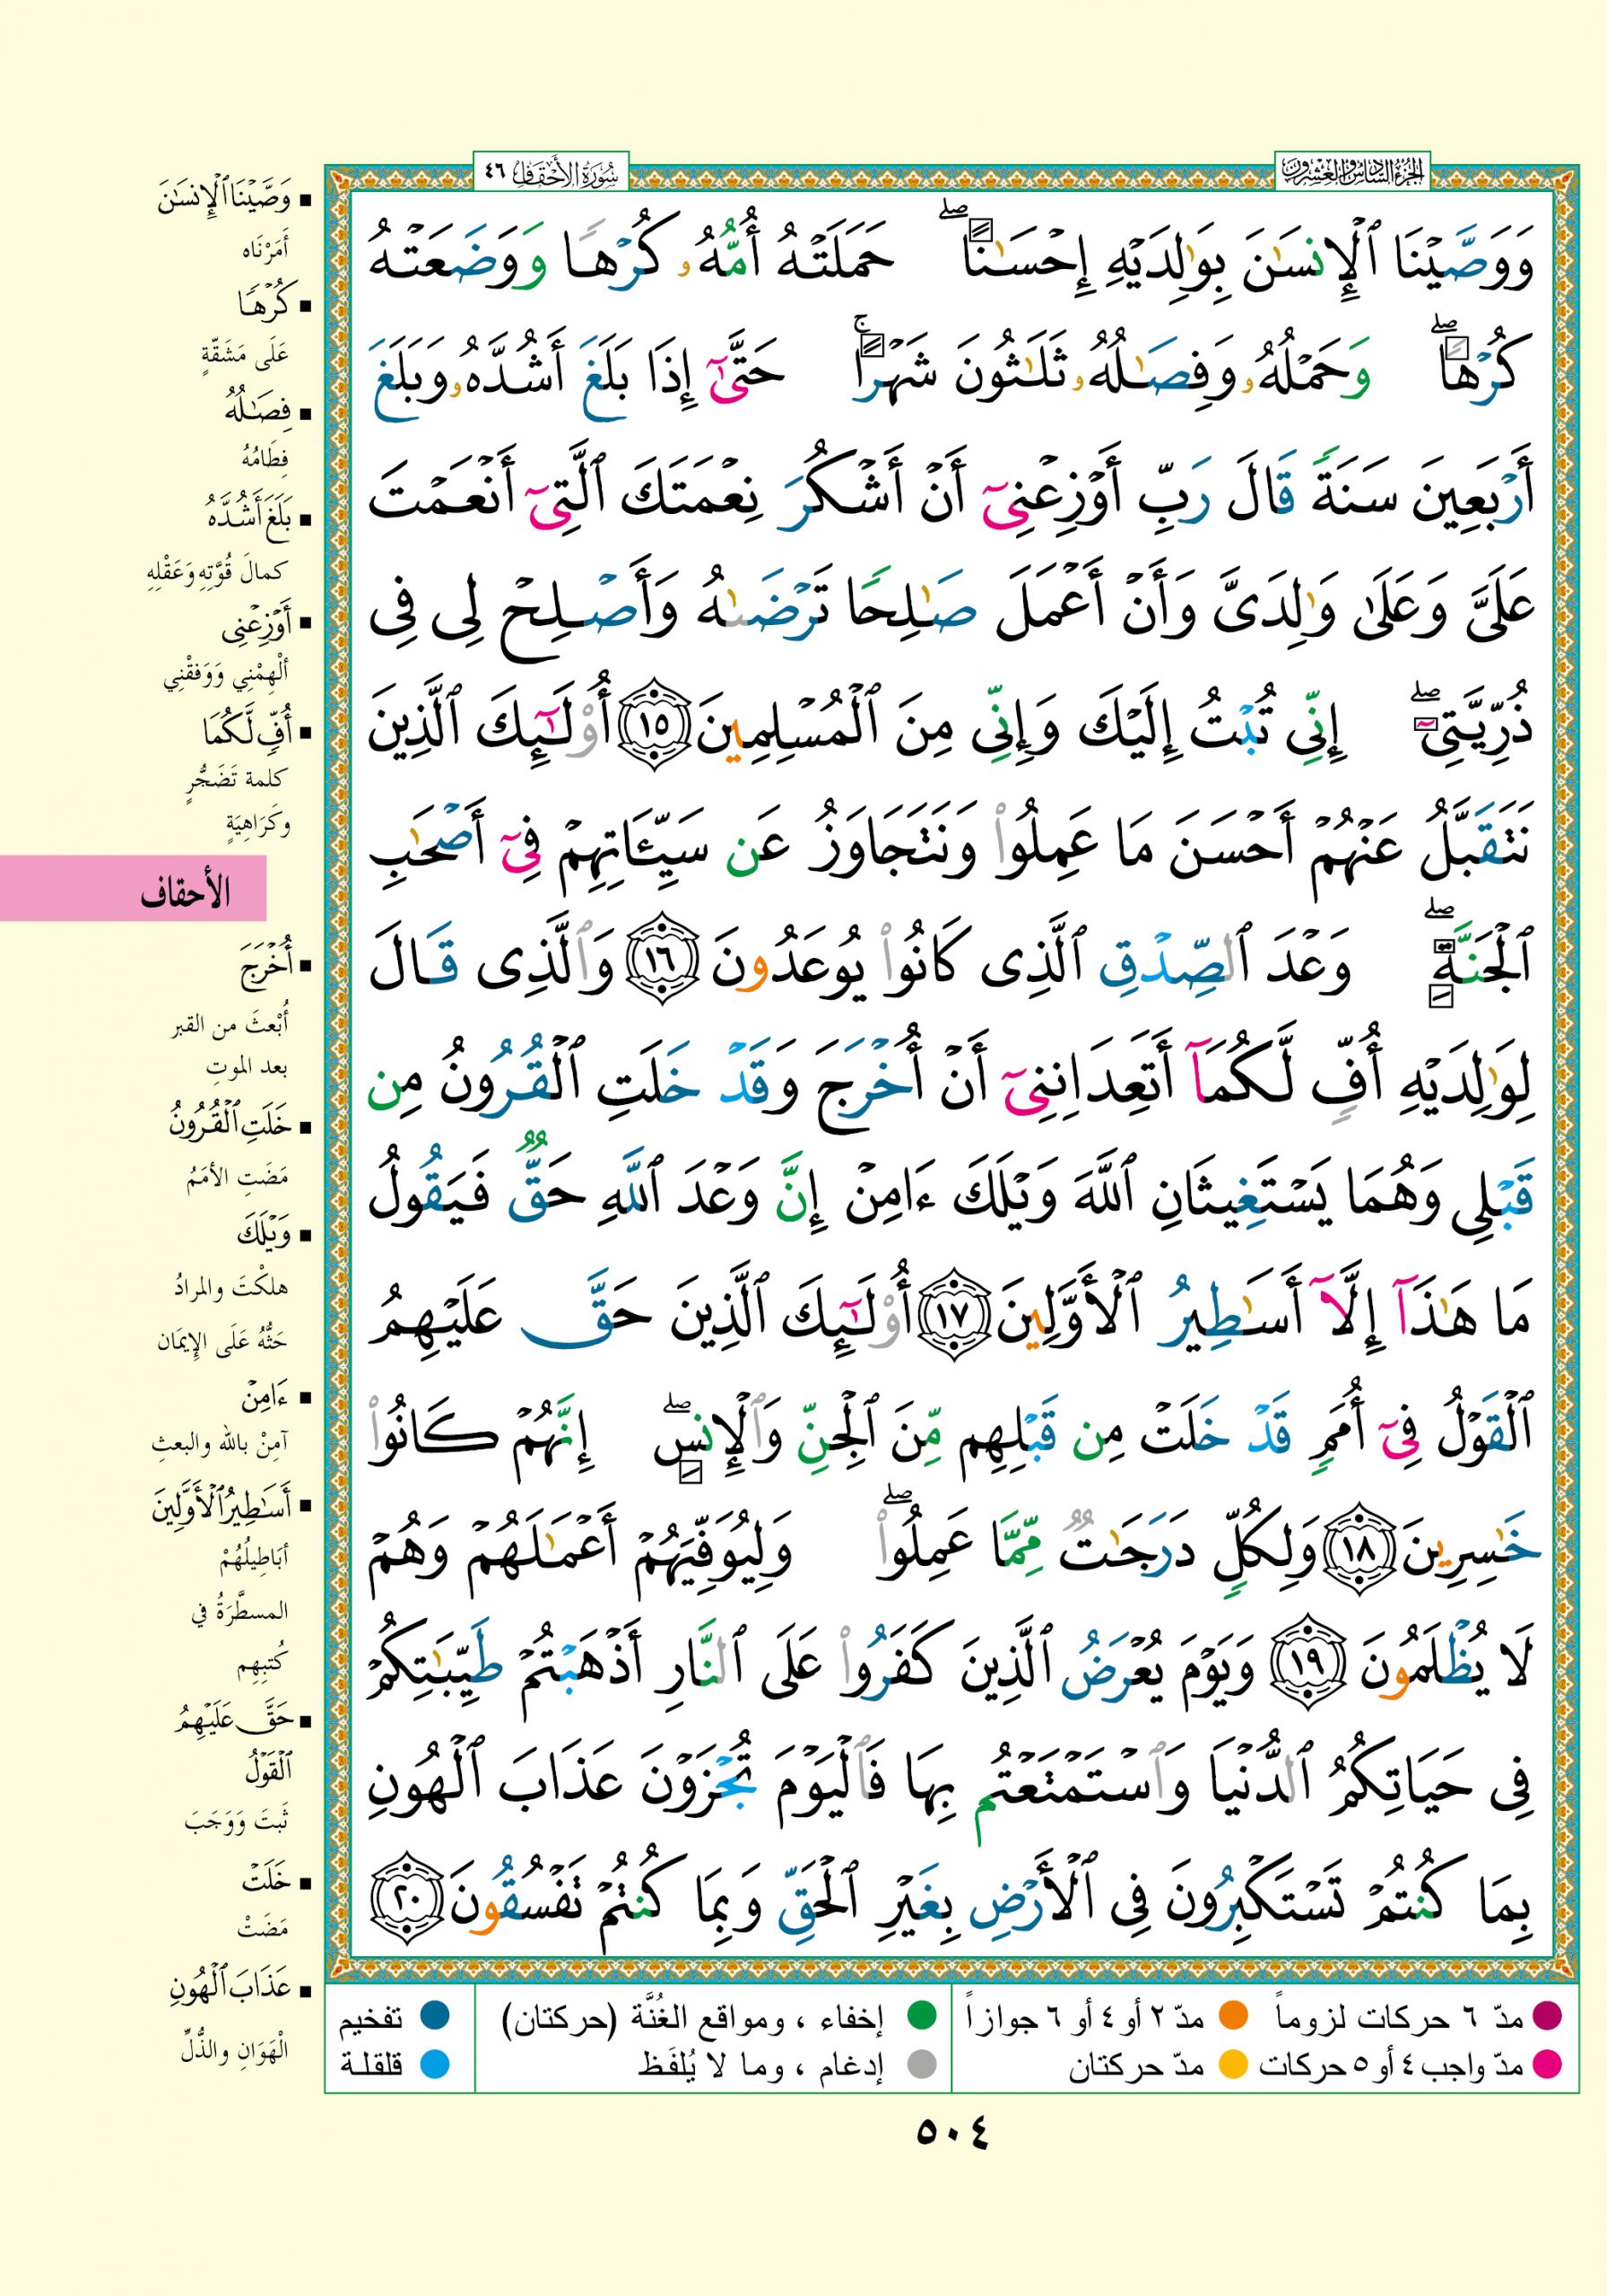 الجزء السادس والعشرون
سورة الأحقاف ٤٦
وَوَصَّيْنَا ٱلْإِنسَٰنَ بِوَٰلِدَيْهِ إِحْسَٰنًا ۖ حَمَلَتْهُ أُمُّهُۥ كُرْهًا وَوَضَعَتْهُ
كُرْهًا ۖ وَحَمْلُهُۥ وَفِصَٰلُهُۥ ثَلَٰثُونَ شَهْرًا ۚ حَتَّىٰٓ إِذَا بَلَغَ أَشُدَّهُۥ وَبَلَغَ
أَرْبَعِينَ سَنَةً قَالَ رَبِّ أَوْزِعْنِىٓ أَنْ أَشْكُرَ نِعْمَتَكَ ٱلَّتِىٓ أَنْعَمْتَ
عَلَىَّ وَعَلَىٰ وَٰلِدَىَّ وَأَنْ أَعْمَلَ صَٰلِحًا تَرْضَىٰهُ وَأَصْلِحْ لِى فِى
ذُرِّيَّتِىٓ ۖ إِنِّى تُبْتُ إِلَيْكَ وَإِنِّى مِنَ ٱلْمُسْلِمِينَ ١٥ أُو۟لَٰٓئِكَ ٱلَّذِينَ
نَتَقَبَّلُ عَنْهُمْ أَحْسَنَ مَا عَمِلُوا۟ وَنَتَجَاوَزُ عَن سَيِّـَٔاتِهِمْ فِىٓ أَصْحَٰبِ
ٱلْجَنَّةِ ۖ وَعْدَ ٱلصِّدْقِ ٱلَّذِى كَانُوا۟ يُوعَدُونَ ١٦ وَٱلَّذِى قَالَ
لِوَٰلِدَيْهِ أُفٍّ لَّكُمَآ أَتَعِدَانِنِىٓ أَنْ أُخْرَجَ وَقَدْ خَلَتِ ٱلْقُرُونُ مِن
قَبْلِى وَهُمَا يَسْتَغِيثَانِ ٱللَّهَ وَيْلَكَ ءَامِنْ إِنَّ وَعْدَ ٱللَّهِ حَقٌّ فَيَقُولُ
مَا هَٰذَآ إِلَّآ أَسَٰطِيرُ ٱلْأَوَّلِينَ ١٧ أُو۟لَٰٓئِكَ ٱلَّذِينَ حَقَّ عَلَيْهِمُ
ٱلْقَوْلُ فِىٓ أُمَمٍ قَدْ خَلَتْ مِن قَبْلِهِم مِّنَ ٱلْجِنِّ وَٱلْإِنسِ ۖ إِنَّهُمْ كَانُوا۟
خَٰسِرِينَ ١٨ وَلِكُلٍّ دَرَجَٰتٌ مِّمَّا عَمِلُوا۟ ۖ وَلِيُوَفِّيَهُمْ أَعْمَٰلَهُمْ وَهُمْ
لَا يُظْلَمُونَ ١٩ وَيَوْمَ يُعْرَضُ ٱلَّذِينَ كَفَرُوا۟ عَلَى ٱلنَّارِ أَذْهَبْتُمْ طَيِّبَٰتِكُمْ
فِى حَيَاتِكُمُ ٱلدُّنْيَا وَٱسْتَمْتَعْتُم بِهَا فَٱلْيَوْمَ تُجْزَوْنَ عَذَابَ ٱلْهُونِ
بِمَا كُنتُمْ تَسْتَكْبِرُونَ فِى ٱلْأَرْضِ بِغَيْرِ ٱلْحَقِّ وَبِمَا كُنتُمْ تَفْسُقُونَ ٢٠
وَصَّيْنَا ٱلْإِنسَٰنَ
أَمَرْنَاه
كُرْهًا
عَلَى مَشَقَّةٍ
فِصَٰلُهُ
فِطَامُهُ
بَلَغَ أَشُدَّهُ
كمالَ قُوَّتِهِ وَعَقْلِهِ
أَوْزِعْنِى
ألْهِمْنِي وَوَفقْنِي
أُفٍّ لَّكُمَا
كلمة تَضَجُّرٍ
وكَرَاهِيَةٍ
الأحقاف
أُخْرَجَ
أُبْعثَ من القبر
بعد الموتِ
خَلَتِ ٱلْقُرُونُ
مَضَتِ الأمَمُ
وَيْلَكَ
هلكْتَ والمرادُ
حَثُّهُ عَلَى الإِيمَان
ءَامِنْ
آمِنْ بالله والبعثِ
أَسَٰطِيرُ ٱلْأَوَّلِينَ
أبَاطِيلُهُمْ
المسطَّرَةُ في
كُتبِهِم
حَقَّ عَلَيْهِمُ
ٱلْقَوْلُ
ثَبتَ وَوَجَبَ
خَلَتْ
مَضَتْ
عَذَابَ ٱلْهُونِ
الْهَوَانِ والذُّلِّ
مدّ ٦ حركات لزوماً
مدّ ٢ أو ٤ أو ٦ جوازاً
إخفاء ، ومواقع الغُنَّة (حركتان)
تفخيم
مدّ واجب ٤ أو ٥ حركات
مدّ حركتان
إدغام ، وما لا يُلفَظ
قلقلة
٥٠٤